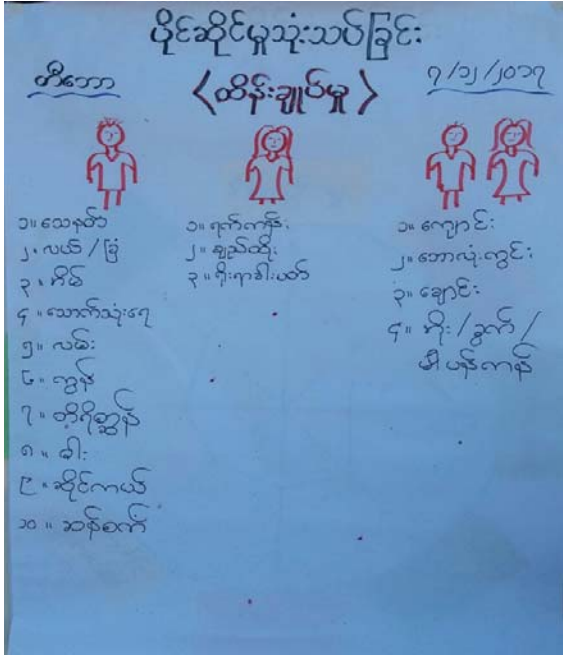 ပိုင်ဆိုင်မှုသုံးသပ်ခြင်း
တီဘော
<ထိန်းချုပ်မှု>
၇/၁၂/၂၀၁၇
၁။ သေနတ်
၂။ လယ် / ခြံ
၃။ အိမ်
၄။ သောက်သုံးရေ
၅။ လမ်း
၆။ ကွန်
၇။ တိရိစ္ဆာန်
၈။ ဓါး
၉။ ဆိုင်ကယ်
၁၀။ ဆန်စက်
၁။ ရက်ကန်း
၂။ ချည်ထိုး
၃။ ရိုးရာခါးပတ်
၁။ ကျောင်း
၂။ ဘောလုံးကွင်း
၃။ ချောင်း
၄။ အိုး / ခွက် /
ပန်ကန်